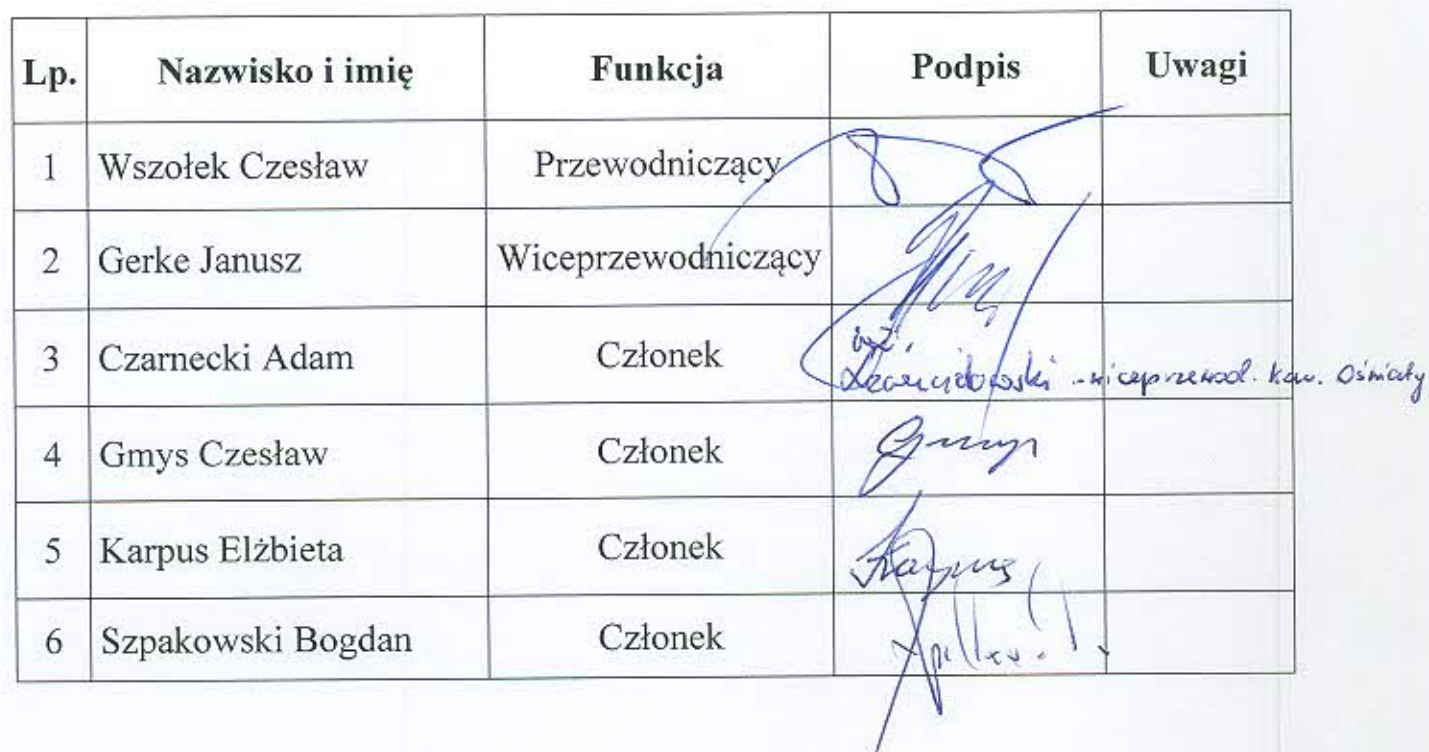 Lp. Nazwisko i imię Funkcja Podpis Uwagi
1 Wszołek Czesław Przewodniczący
2 Gerke Janusz Wiceprzewodniczący
3 Czarnecki Adam Członek
wiceprzewod. Kom. Oświaty
4 Gmys Czesław Członek Gmys
5 Karpus Elżbieta Członek Karpus
6 Szpakowski Bogdan Członek